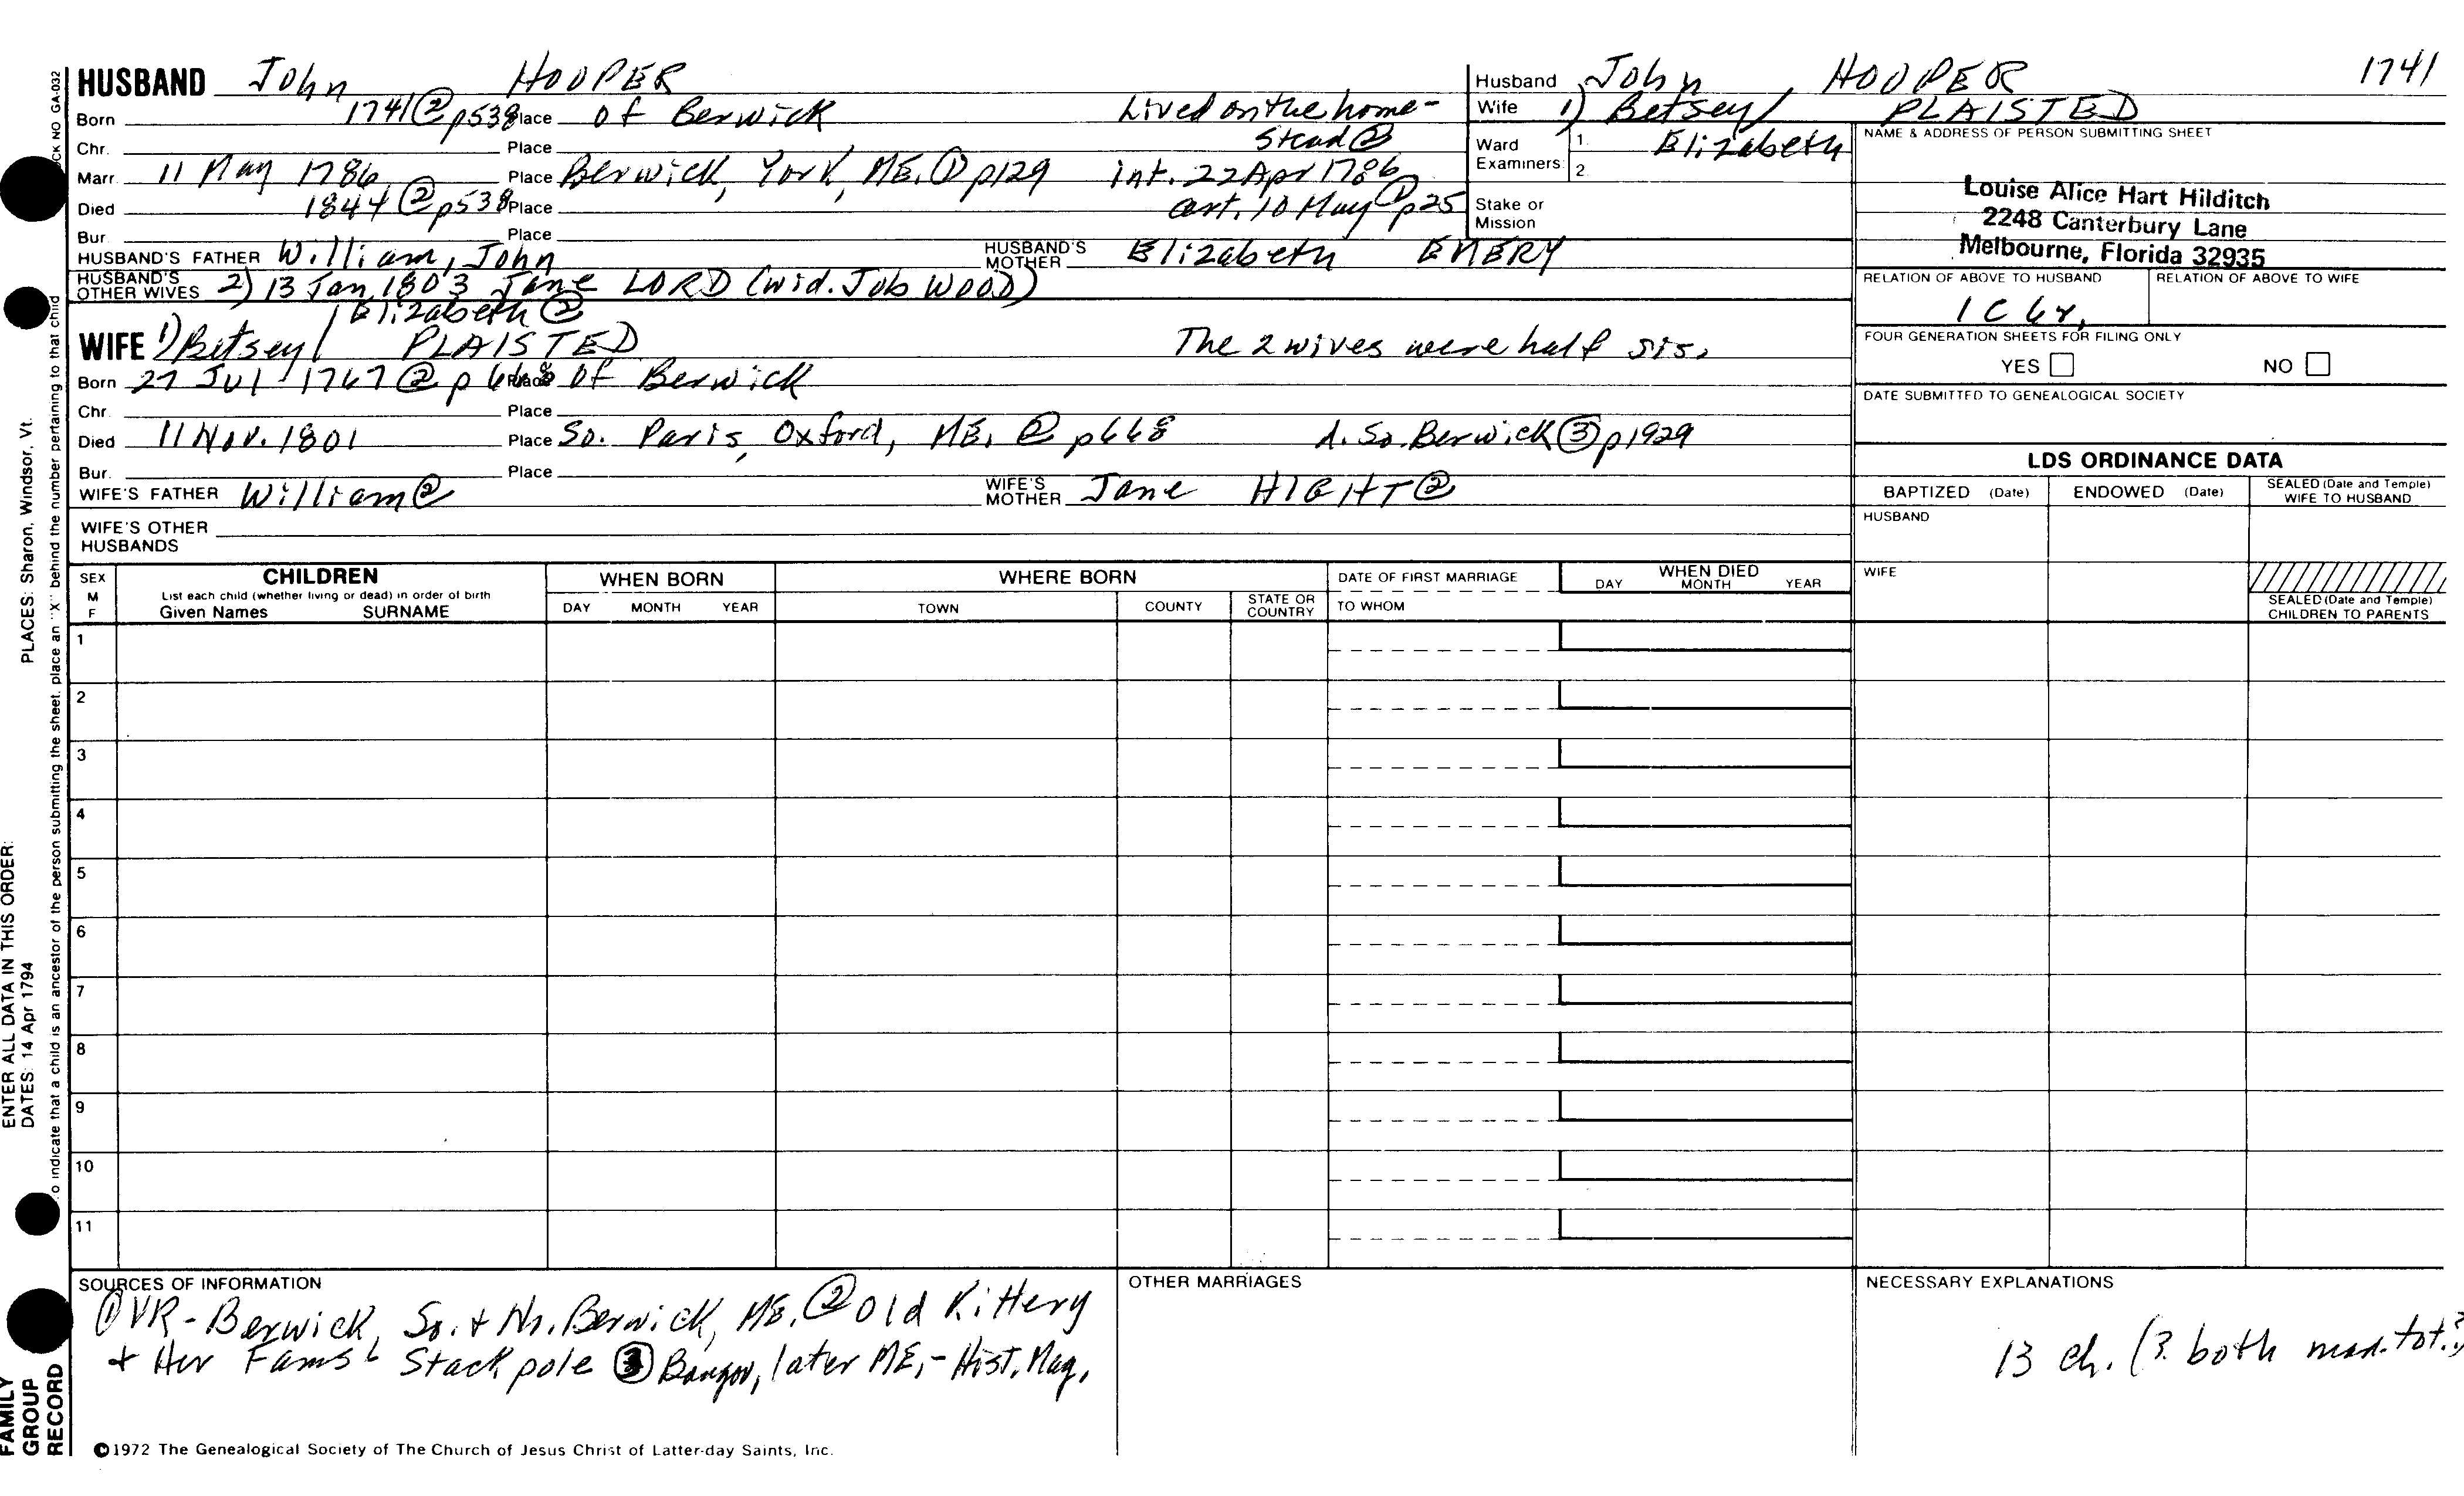 HUSBAND John HOOPER
Born 1741 ② p538 Place of Berwick Lived on the home-
Chr. Place stead ②
Marr. 11 May 1786 Place Berwick, York, ME. ① p129 int. 22 Apr 1786
Died 1844 ② p538 Place cert. 10 May ① p25
Bur. Place
HUSBAND'S FATHER William, John HUSBAND'S MOTHER Elizabeth EMERY
HUSBAND'S OTHER WIVES 2) 13 Jan 1803 Jane LORD (wid. Job WOOD)
Elizabeth ②
WIFE 1) Betsey/ PLAISTED The 2 wives were half sis.
Born 27 Jul 1767 @ p 668 Place of Berwick
Chr. Place
Died 11 Nov. 1801 Place So. Paris, Oxford, ME. @ p668 d. So. Berwick ③ p1929
Bur. Place
WIFE'S FATHER William ② WIFE'S MOTHER Jane HIGHT ②
WIFE'S OTHER HUSBANDS
Husband John HOOPER 1741
Wife 1) Betsey/ PLAISTED
Elizabeth
Ward Examiners: 1. 2.
Stake or Mission
NAME & ADDRESS OF PERSON SUBMITTING SHEET
Louise Alice Hart Hilditch
2248 Canterbury Lane
Melbourne, Florida 32935
RELATION OF ABOVE TO HUSBAND RELATION OF ABOVE TO WIFE
1C 6r.
FOUR GENERATION SHEETS FOR FILING ONLY
YES NO
DATE SUBMITTED TO GENEALOGICAL SOCIETY
LDS ORDINANCE DATA
BAPTIZED (Date) ENDOWED (Date) SEALED (Date and Temple) WIFE TO HUSBAND
HUSBAND
WIFE
SEALED (Date and Temple) CHILDREN TO PARENTS
SEX M F
CHILDREN
List each child (whether living or dead) in order of birth
Given Names SURNAME
WHEN BORN
DAY MONTH YEAR
WHERE BORN
TOWN COUNTY STATE OR COUNTRY
DATE OF FIRST MARRIAGE
TO WHOM
WHEN DIED
DAY MONTH YEAR
1
2
3
4
5
6
7
8
9
10
11
SOURCES OF INFORMATION
① VR - Berwick, So. + No. Berwick, ME. ② Old Kittery
+ Her Fams Stackpole ③ Bangor, later ME, - Hist. Mag.
OTHER MARRIAGES
NECESSARY EXPLANATIONS
13 ch. (? both mar. tot.?)
©1972 The Genealogical Society of The Church of Jesus Christ of Latter-day Saints, Inc.
CK NO GA-032
o indicate that a child is an ancestor of the person submitting the sheet, place an "X" behind the number pertaining to that child
ENTER ALL DATA IN THIS ORDER:
DATES: 14 Apr 1794 PLACES: Sharon, Windsor, Vt.
FAMILY
GROUP
RECORD